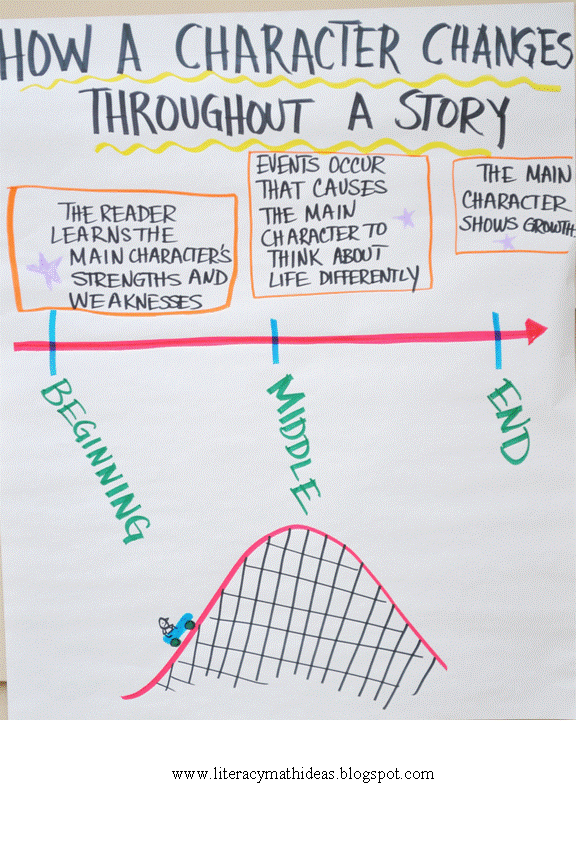 HOW A CHARACTER CHANGES
THROUGHOUT A STORY
THE READER
LEARNS THE
MAIN CHARACTER'S
STRENGTHS AND
WEAKNESSES
EVENTS OCCUR
THAT CAUSES
THE MAIN
CHARACTER TO
THINK ABOUT
LIFE DIFFERENTLY
THE MAIN
CHARACTER
SHOWS GROWTH
BEGINNING
MIDDLE
END
www.literacymathideas.blogspot.com